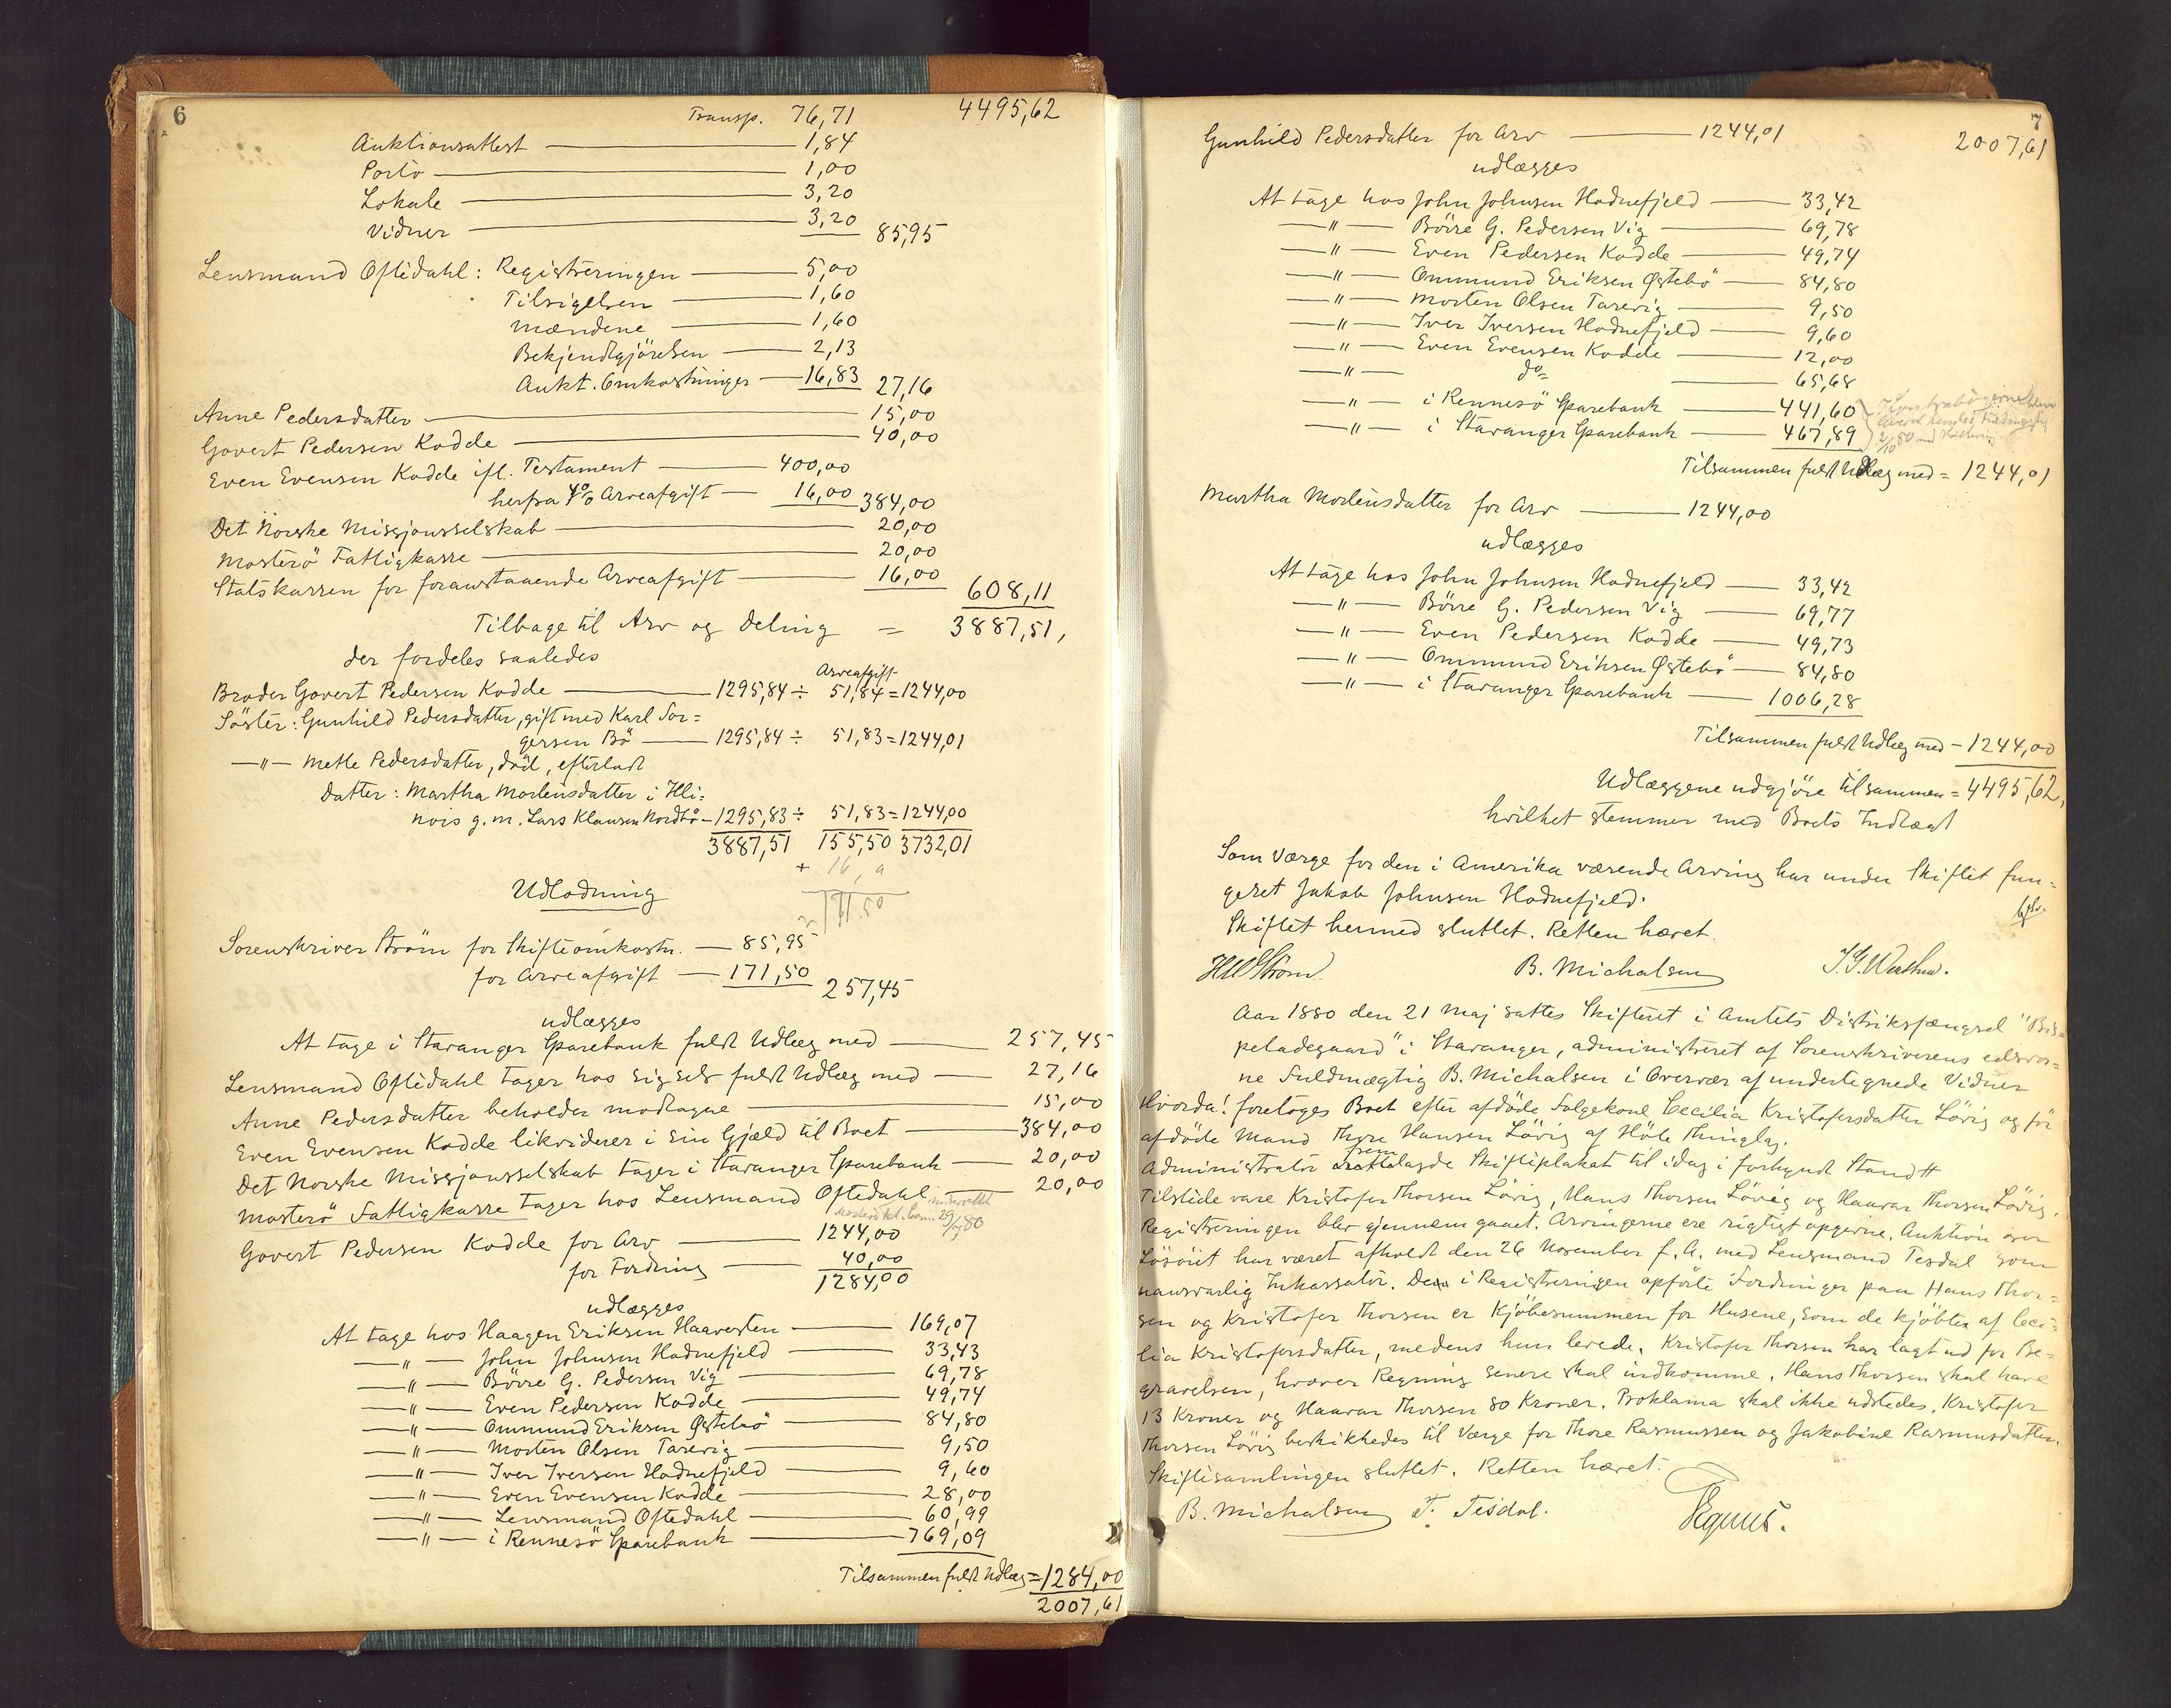 6
Transp. 76,71 4495,62
Auktionsattest — 1,84
Porto — 1,00
Lokale — 3,20
Vidner — 3,20 85,95
Lensmand Oftedahl: Registreringen — 5,00
Tilsigelsen — 1,60
Mændene — 1,60
Bekjendtgjörelsen — 2,13
Aukt. Omkostninger — 16,83 27,16
Anne Pedersdatter — 15,00
Govert Pedersen Kodde — 40,00
Even Evensen Kodde ifl. Testament — 400,00
herfra 4% Arveafgift — 16,00 384,00
Det Norske Missjonsselskab — 20,00
Mosterö Fattigkasse — 20,00
Statskassen for foranstaaende Arveafgift — 16,00 608,11
Tilbage til Arv og Deling = 3887,51,
der fordeles saaledes
Arveafgift
Broder Govert Pedersen Kodde — 1295,84 ÷ 51,84 = 1244,00
Söster: Gunhild Pedersdatter, gift med Karl Tor=
gersen Bö — 1295,84 ÷ 51,83 = 1244,01
—"— Mette Pedersdatter, död, efterladt
Datter: Martha Mortensdatter i Illi=
nois g. m. Lars Klausen Nordbö — 1295,83 ÷ 51,83 = 1244,00
3887,51 155,50 3732,01
+ 16, "
171,50
Udlodning
Sorenskriver Ström for Skifteomkostn. — 85,95
for Arveafgift — 171,50 257,45
udlægges
At tage i Stavanger Sparebank fuldt Udlæg med — 257,45
Lensmand Oftedahl tager hos sig selv fuldt Udlæg med — 27,16
Anne Pedersdatter beholder modtagne — 15,00
Even Evensen Kodde likviderer i sin Gjæld til Boet — 384,00
Det Norske Missjonsselskab tager i Stavanger Sparebank — 20,00
Mosterö Fattigkasse tager hos Lensmand Oftedahl — 20,00
Govert Pedersen Kodde for Arv — 1244,00
for Fordring — 40,00
1284,00
udlægges
At tage hos Haagen Eriksen Haavesten — 169,07
—"— John Johnsen Hodnefjeld — 33,43
—"— Börre G. Pedersen Vig — 69,78
—"— Even Pedersen Kodde — 49,74
—"— Ommund Eriksen Østebö — 84,80
—"— Morten Olsen Tarevig — 9,50
—"— Iver Iversen Hodnefjeld — 9,60
—"— Even Evensen Kodde — 28,00
—"— Lensmand Oftedahl — 60,99
—"— i Rennesö Sparebank — 769,09
Tilsammen fuldt Udlæg = 1284,00
2007,61
7
Gunhild Pedersdatter for Arv — 1244,01 2007,61
udlægges
At tage hos John Johnsen Hodnefjeld — 33,42
—"— Börre G. Pedersen Vig — 69,78
—"— Even Pedersen Kodde — 49,74
—"— Ommund Eriksen Østebö — 84,80
—"— Morten Olsen Tarevig — 9,50
—"— Iver Iversen Hodnefjeld — 9,60
—"— Even Evensen Kodde — 12,00
—"— do — 65,68
—"— i Rennesö Sparebank — 441,60
—"— i Stavanger Sparebank — 467,89
Tilsammen fuldt Udlæg med = 1244,01
Martha Mortensdatter for Arv — 1244,00
udlægges
At tage hos John Johnsen Hodnefjeld — 33,42
—"— Börre G. Pedersen Vig — 69,77
—"— Even Pedersen Kodde — 49,73
—"— Ommund Eriksen Østebö — 84,80
—"— i Stavanger Sparebank — 1006,28
Tilsammen fuldt Udlæg med — 1244,00
Udlæggene udgjöre tilsammen = 4495,62,
hvilket stemmer med Boets Indtægt
Som Værge for den i Amerika værende Arving har under Skiftet fun=
geret Jakob Johnsen Hodnefjeld.
Skiftet hermed sluttet. Retten hævet.
HW Ström. B. Michalsen
Aar 1880 den 21 Maj sattes Skifteret i Amtets Distriksfængsel "Bis=
peladegaard" i Stavanger, administreret af Sorenskriverens edsvor=
ne Fuldmægtig B. Michalsen i Overvær af undertegnede Vidner
Hvorda! foretoges Boet efter afdöde Folgekone Cecilia Kristofersdatter Lövig og för
afdöde Mand Thore Hansen Lövig af Höle Thinglag.
Administrator fremlagde Skifteplakat til idag i forkyndt Stand #
Tilstede vare Kristofer Thorsen Lövig, Hans Thorsen Lövig og Haavar Thorsen Lövig.
Registreringen blev gjennemgaaet. Arvingerne ere rigtigt opgivne. Auktion over
Lösöret har været afholdt den 26 November f. A. med Lensmand Tesdal som
uansvarlig Inkassator. De i Registreringen opförte Fordringer paa Hans Thor=
sen og Kristofer Thorsen er Kjöbesummen for Husene, som de kjöbte af Ceci=
lia Kristofersdatter, medens hun levede. Kristofer Thorsen har lagt ud for Be=
gravelsen, hvorover Regning senere skal indkomme. Hans Thorsen skal have
13 Kroner og Haavar Thorsen 80 Kroner. Proklama skal ikke udstedes. Kristofer
Thorsen Lövig beskikkedes til Værge for Thore Rasmussen og Jakobine Rasmusdatter.
Skiftesamlingen sluttet. Retten hævet.
B. Michalsen T. Tesdal.